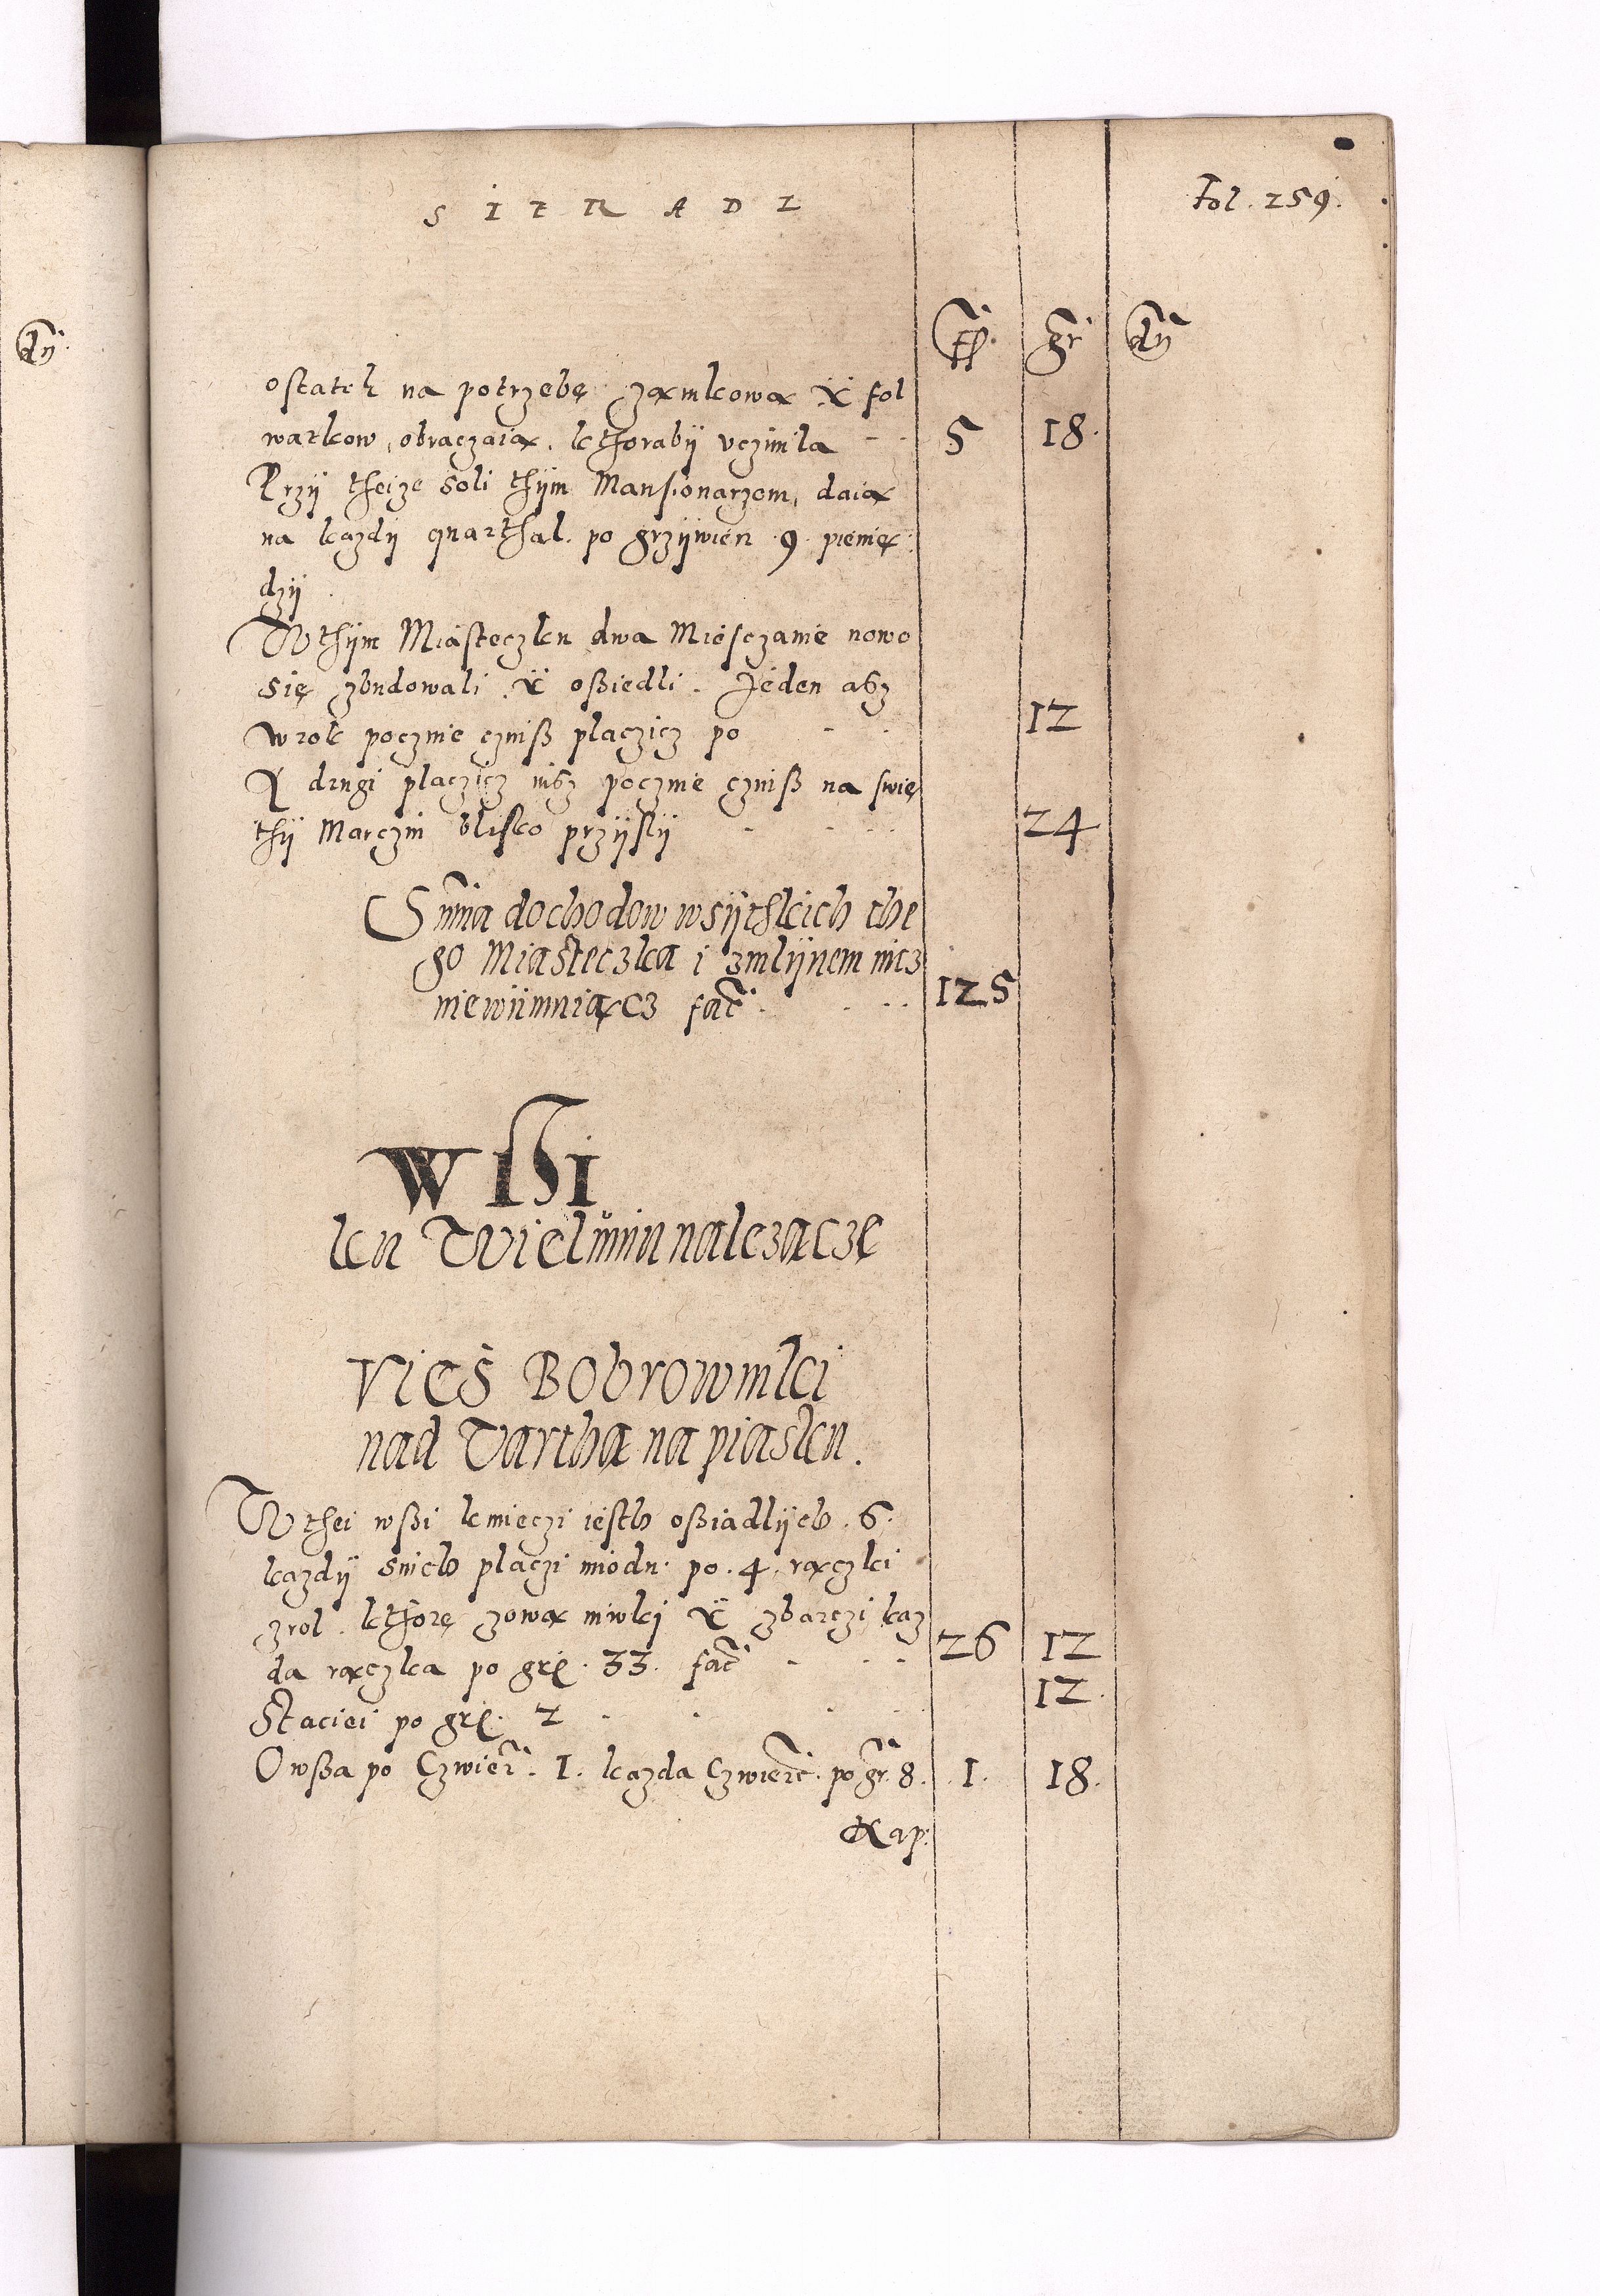 SIERADZ
Fol. 259.
fl. gr dn
dn
ostatek na potrzebę zamkową Y fol
warkow, obraczaią. kthorabÿ vczinila - - 5 18.
Przÿ theize soli thÿm Mansionarzom, daią
na kazdÿ quarthal. po grzÿwien 9. pienię
dzÿ
W thÿm Miasteczku dwa Miesczanie nowo
się zbudowali. Y oßiedli. Jeden asz
w rok pocznie czniß placzicz po - - 12
A drugi placzicz nisz pocznie czniß na swię
thÿ Marczin blisko przÿslÿ - - - 24
Suma dochodow wsÿthkich the
go Miasteczka i zmlÿnem nicz
niewÿimuiącz fac. - - 125
WSSI
ku Wielunin nalezączę
Vieś Bobrowniki
nad Varthą na piasku.
W thei wßi kmieczi iesth oßiadlÿch. 6.
kazdÿ snich placzi miodu. po. 4. rączki
z rol. kthorę zową niwki Y zbarczi kaz
da rączka po grę. 33. fac - - - 26 12
Staciei po grę. 2 - - - - 12.
Owßa po Czwier. 1. kazda Czwiert. po gr. 8. 1. 18.
Kap: